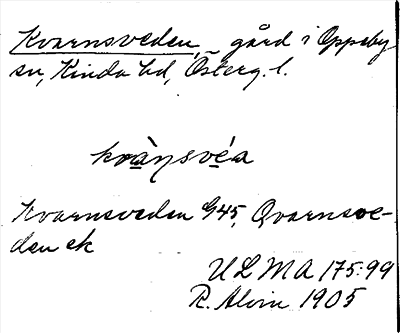 Kvarnsveden, gård i Oppeby
sn, Kinda hd, Österg. l.
kvànsvéa
Kvarnsveden G45, Qvarnsve-
den ek
ULMA 175:99
R. Alvin 1905